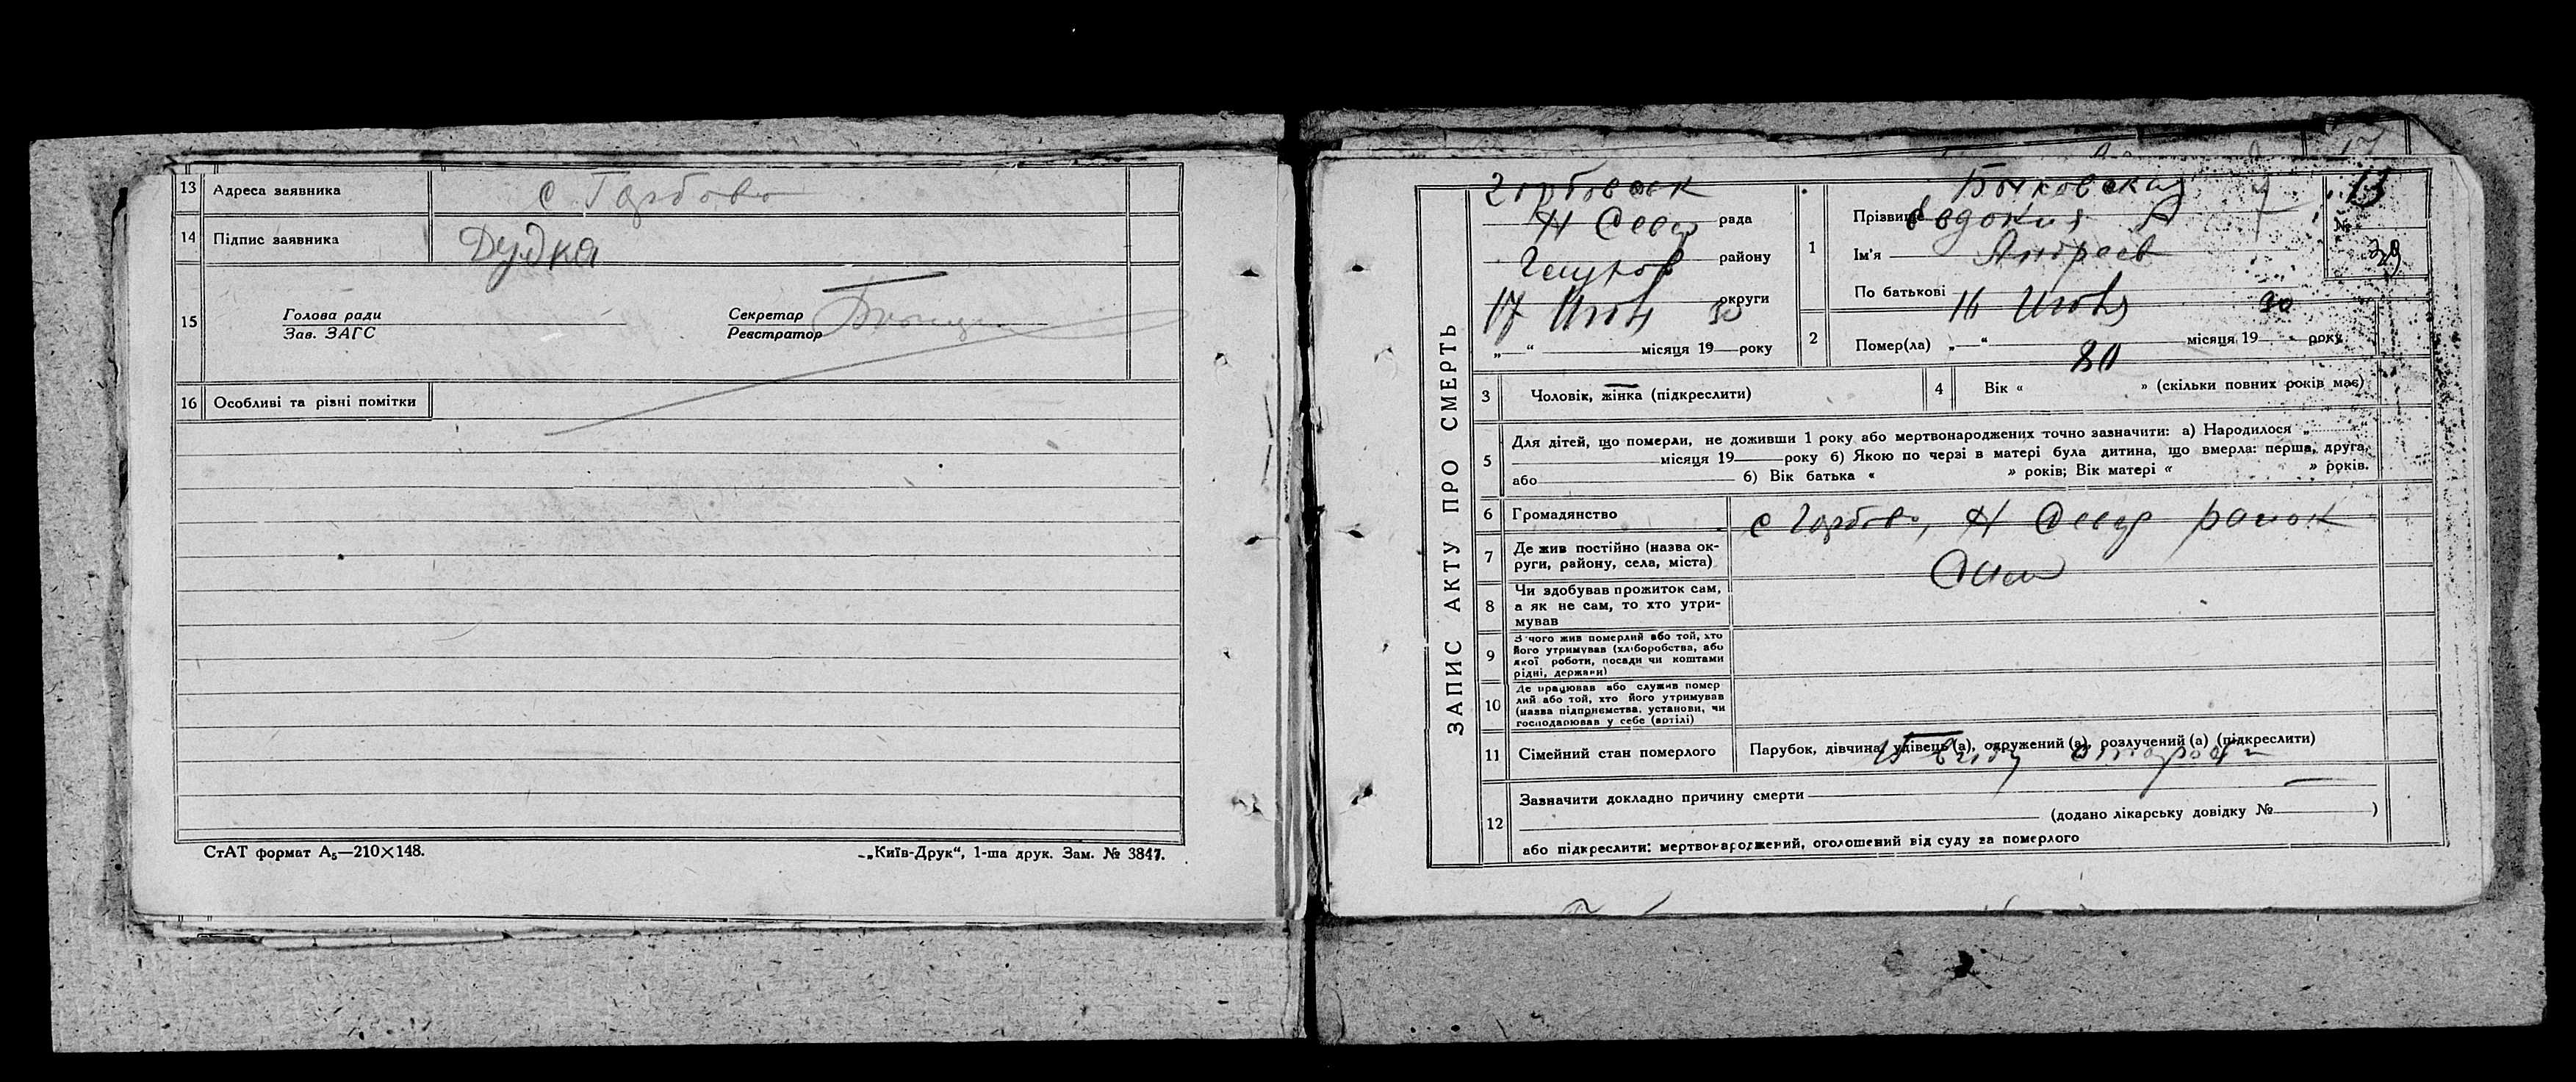 13 Адреса заявника с Горбово
14 Підпис заявника Дудка
15 Голова ради Секретар
Зав. ЗАГС Реєстратор
16 Особливі та різні помітки
СтАТ формат А₅—210×148.
„Київ-Друк“, 1-ша друк. Зам. № 3847.
17
ЗАПИС АКТУ ПРО СМЕРТЬ
Горбовск
Н Севр рада
району
округи
17 Июня 30
„—“ місяця 19 року
1 Прізвище Быковская
Ім'я Евдокия А
По батькові Андреев
13
№
2 Помер(ла) „—“ 16 Июня місяця 19 30 року
3 Чоловік, жінка (підкреслити)
4 Вік « 80 » (скільки повних років має)
5 Для дітей, що померли, не доживши 1 року або мертвонароджених точно зазначити: а) Народилося „
місяця 19 року б) Якою по черзі в матері була дитина, що вмерла: перша, друга,
або б) Вік батька « » років; Вік матері « » років.
6 Громадянство
с Горбово, Н Севр район
7 Де жив постійно (назва ок-
руги, району, села, міста)
8 Чи здобував прожиток сам,
а як не сам, то хто утри-
мував
9 З чого жив померлий або той, хто
його утримував (хліборобства, або
якої роботи, посади чи коштами
рідні, держави)
10 Де працював або служив помер
лий або той, хто його утримував
(назва підприємства, установи, чи
господарював у себе (артілі)
11 Сімейний стан померлого Парубок, дівчина, удівець (а), одружений (а), розлучений (а) (підкреслити)
12 Зазначити докладно причину смерти
(додано лікарську довідку № )
або підкреслити: мертвонароджений, оголошений від суду за померлого